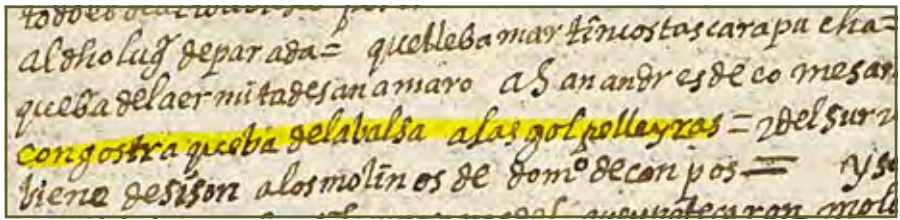 al dho lug̃ de parada= que lleba martin costas carapucha=
que ba de la ermita de san amaro a san andres de comesar
congostra que ba de la balsa a las golpelleyras = y del sur y
biene de sison a los molinos de domº de con pos = y se